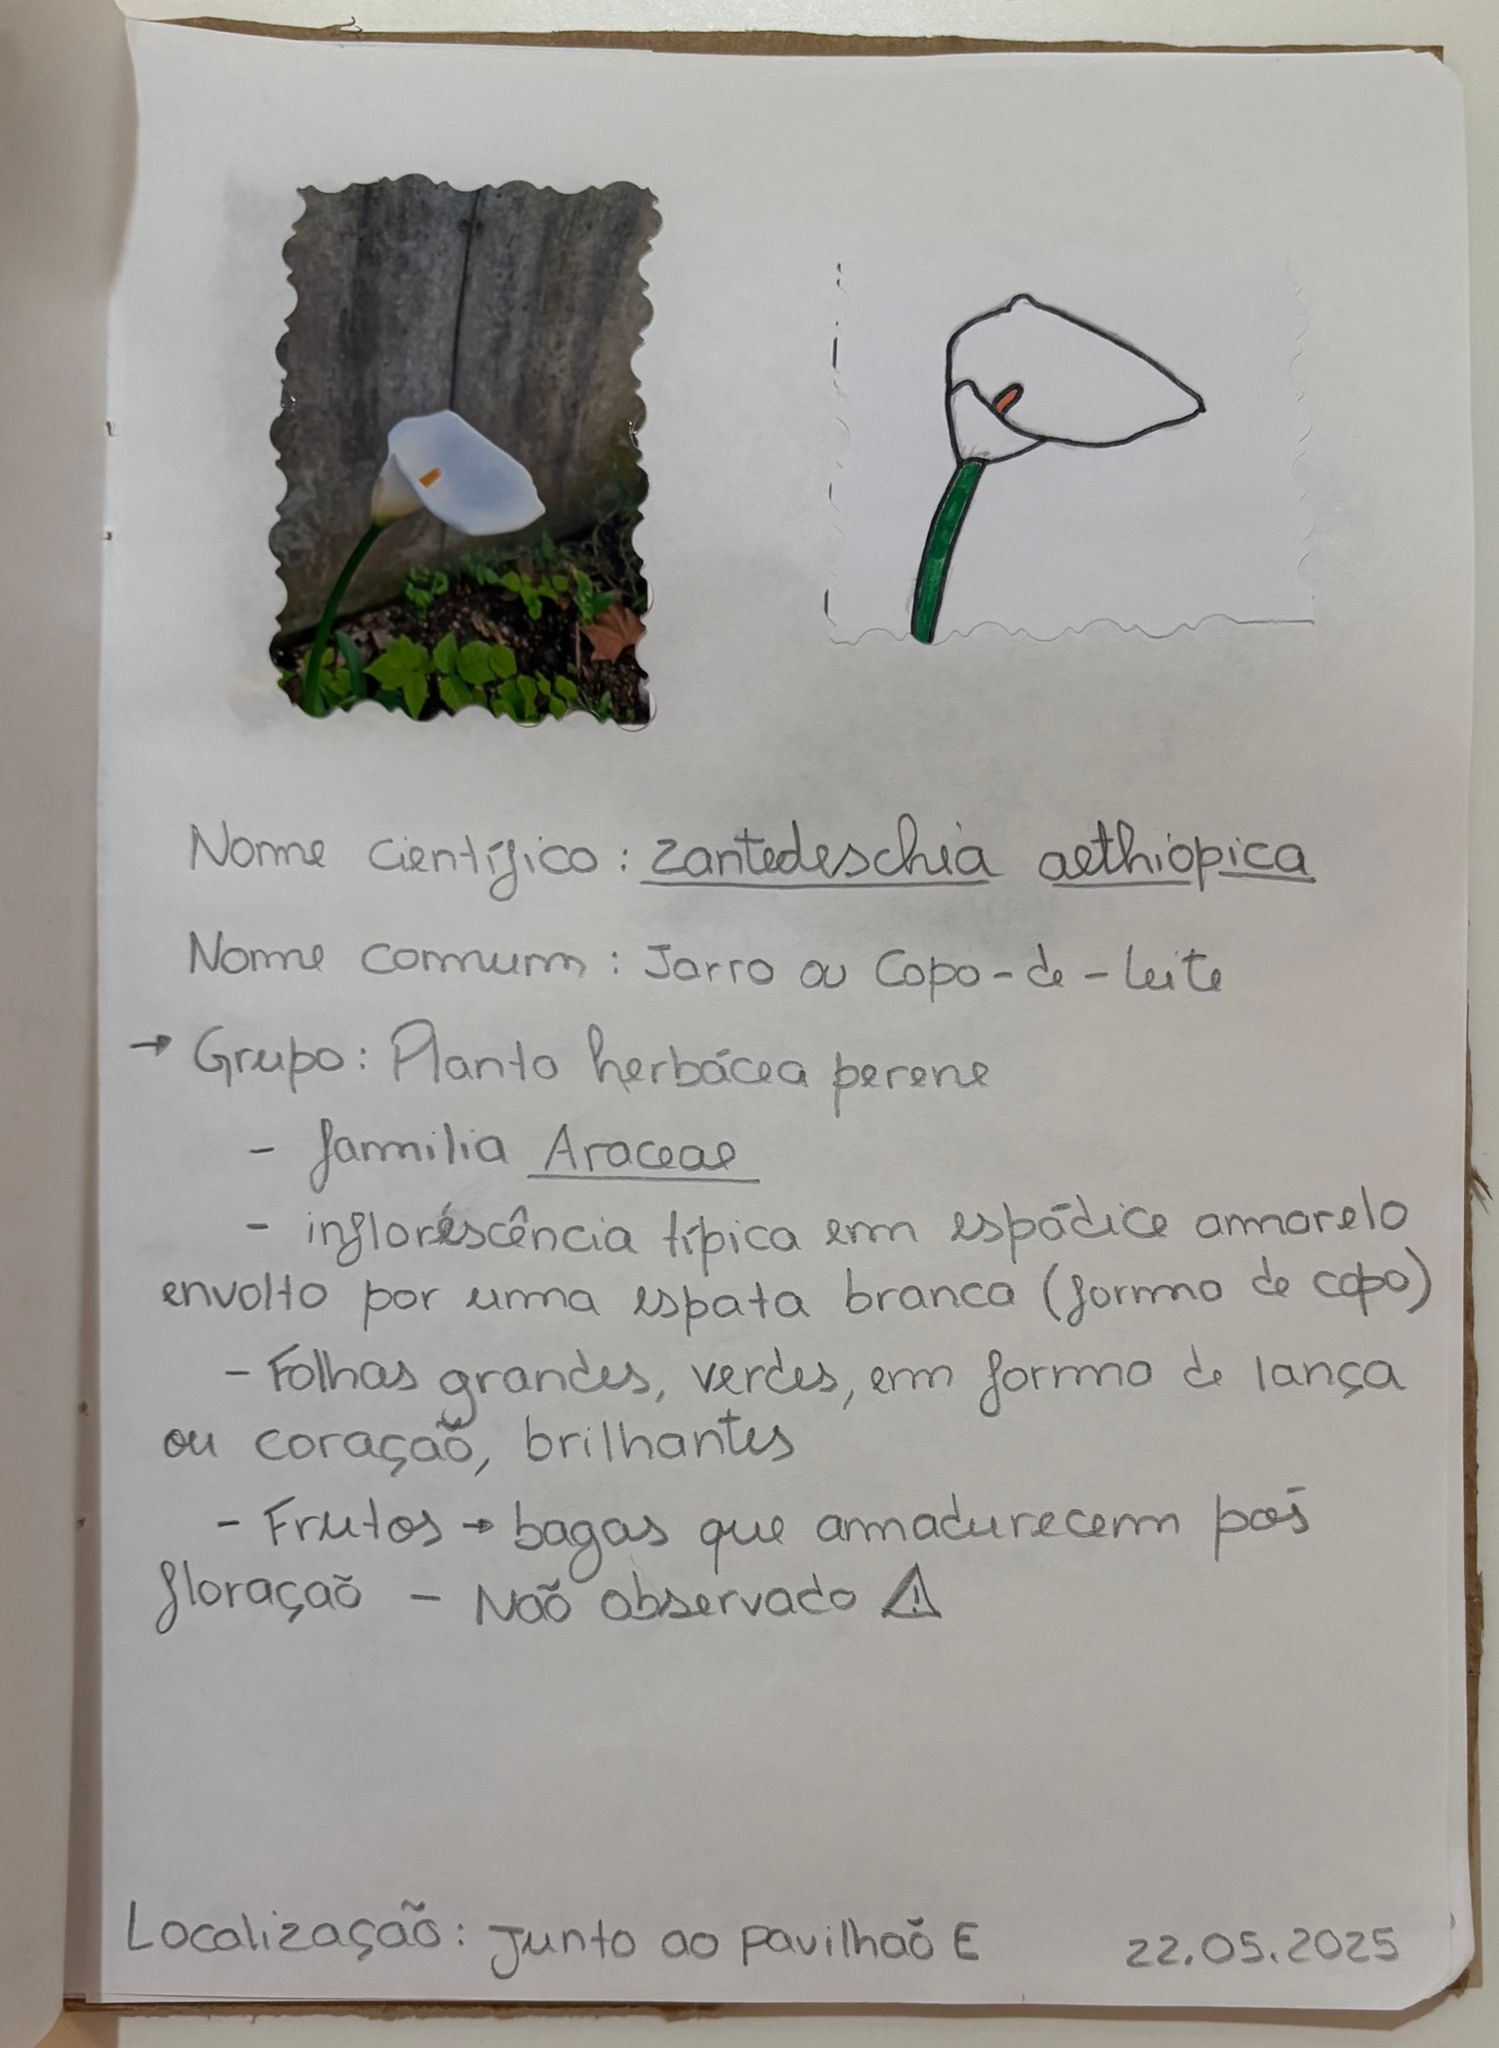 Nome científico: zantedeschia aethiopica
Nome comum: Jarro ou Copo-de-leite
→ Grupo: Planta herbácea perene
- família Araceae
- infloréscência típica em espádice amarelo
envolto por uma espata branca (forma de copo)
- Folhas grandes, verdes, em forma de lança
ou coração, brilhantes
- Frutos → bagas que amadurecem pós
floração - Não observado ⚠
Localização: Junto ao pavilhão E
22.05.2025